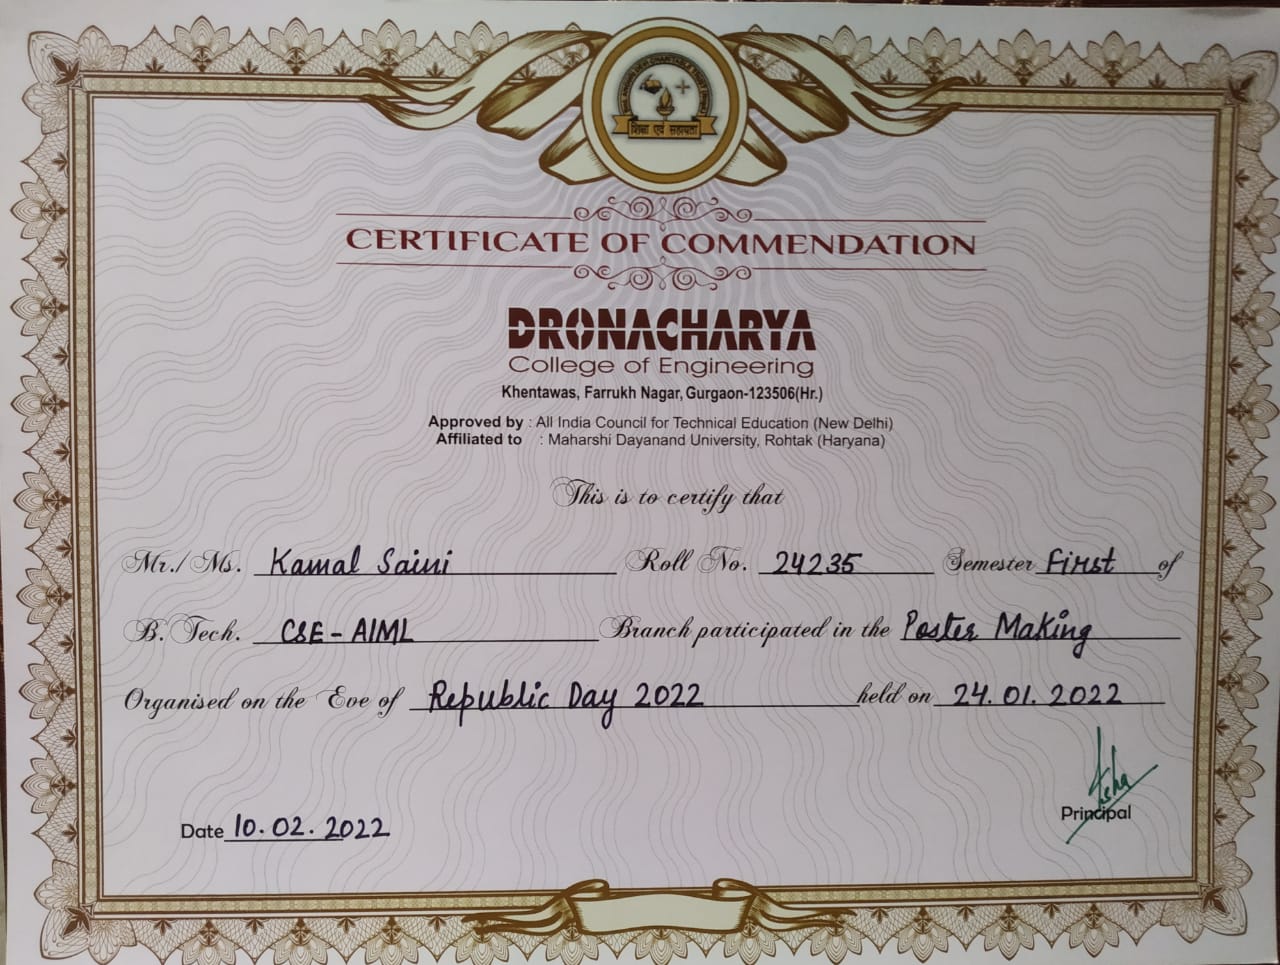 शिक्षा एवं सहायता
CERTIFICATE OF COMMENDATION
DRONACHARYA
College of Engineering
Khentawas, Farrukh Nagar, Gurgaon-123506(Hr.)
Approved by : All India Council for Technical Education (New Delhi)
Affiliated to : Maharshi Dayanand University, Rohtak (Haryana)
This is to certify that
Mr./Ms. Kamal Saini Roll No. 24235 Semester First of
B. Tech. CSE-AIML Branch participated in the Poster Making
Organised on the Eve of Republic Day 2022 held on 24.01.2022
Asha
Date 10.02.2022
Principal